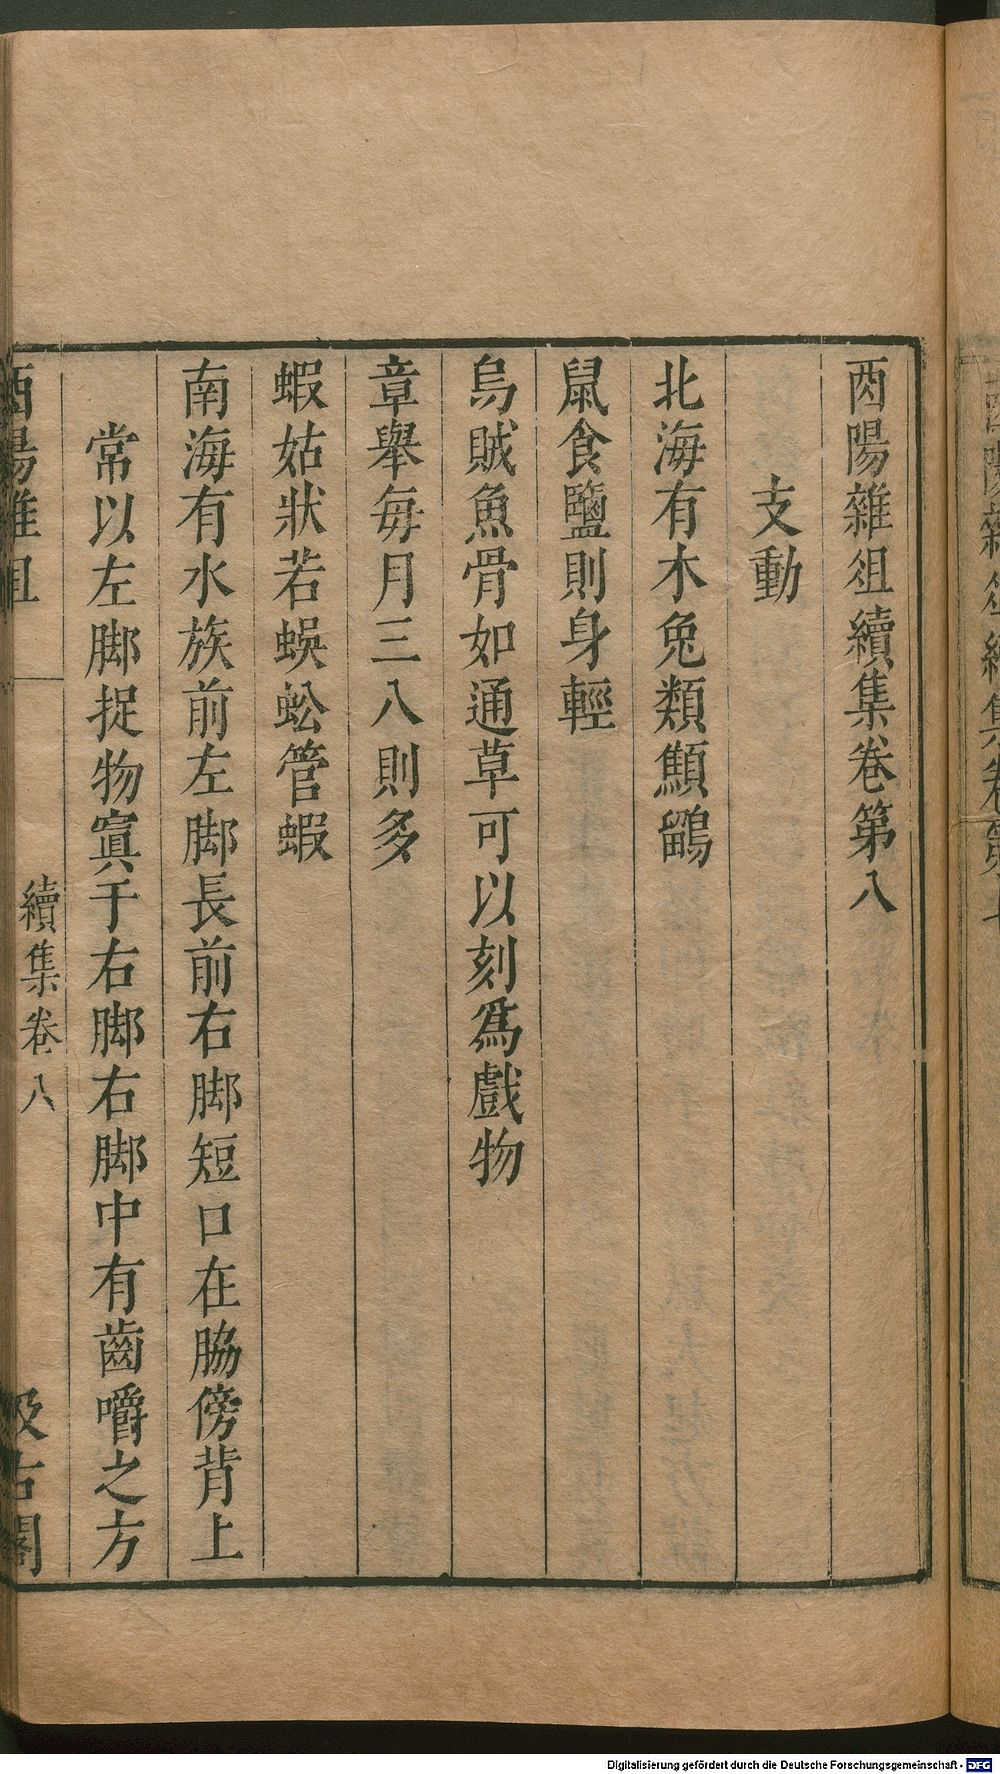 酉陽雜俎續集卷第八
支動
北海有木兔類鵋鶹
鼠食鹽則身輕
烏賊魚骨如通草可以刻爲戲物
章舉每月三八則多
蝦姑狀若蜈蚣管蝦
南海有水族前左脚長前右脚短口在脇傍背上
常以左脚捉物寘于右脚右脚中有齒嚼之方
酉陽雜俎
續集卷八
汲古閣
Digitalisierung gefördert durch die Deutsche Forschungsgemeinschaft - DFG